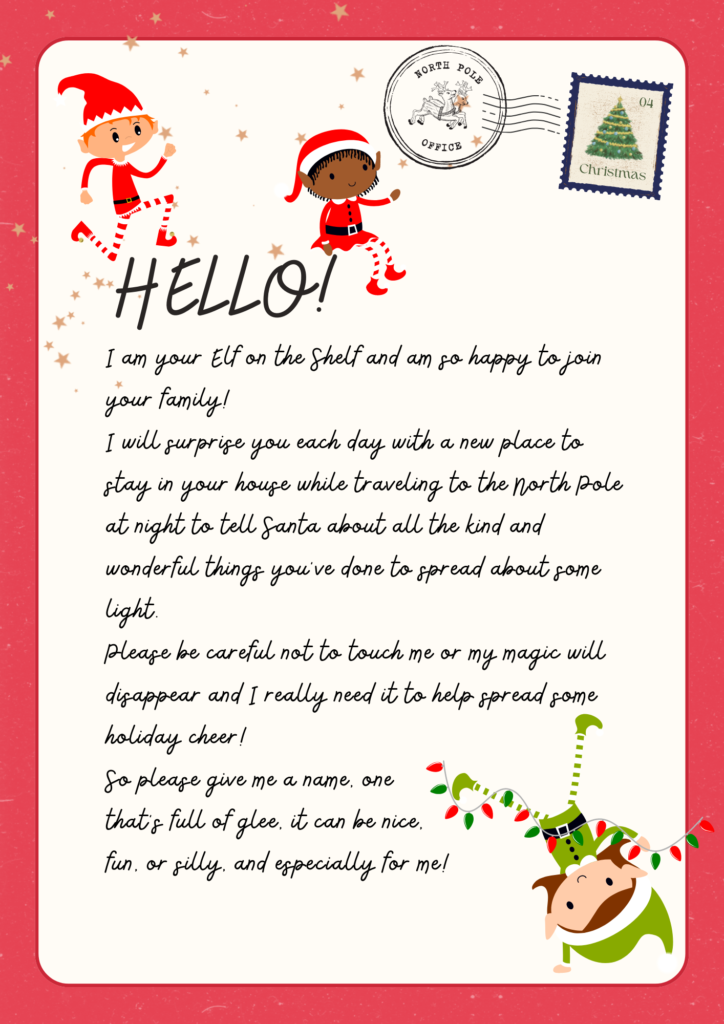 NORTH POLE
OFFICE
04
Christmas
HELLO!
I am your Elf on the Shelf and am so happy to join
your family!
I will surprise you each day with a new place to
stay in your house while traveling to the North Pole
at night to tell Santa about all the kind and
wonderful things you've done to spread about some
light.
Please be careful not to touch me or my magic will
disappear and I really need it to help spread some
holiday cheer!
So please give me a name, one
that's full of glee, it can be nice,
fun, or silly, and especially for me!